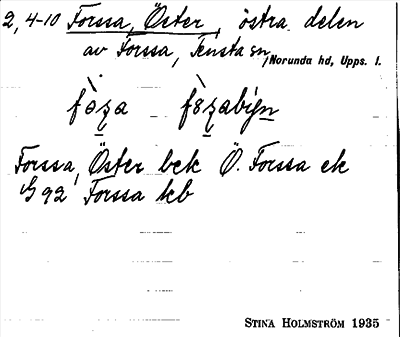 2, 4-10 Forssa, Öster, östra delen
av Forssa, Tensta sn, Norunda hd, Upps. l.
fòza fòzabign
Forssa, Öster bek Ö. Forssa ek
G92 Forssa kb
STINA HOLMSTRÖM 1935